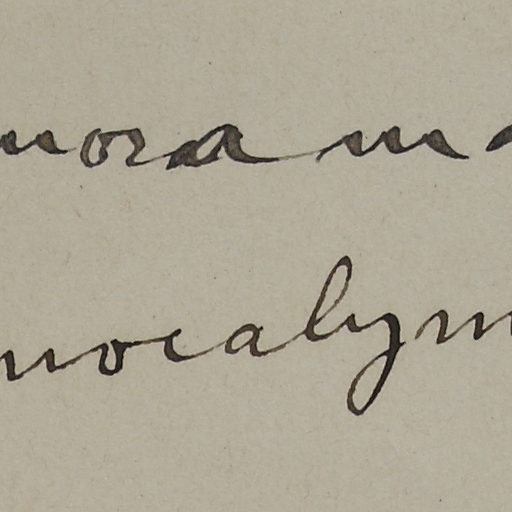 nora ma
nocalym